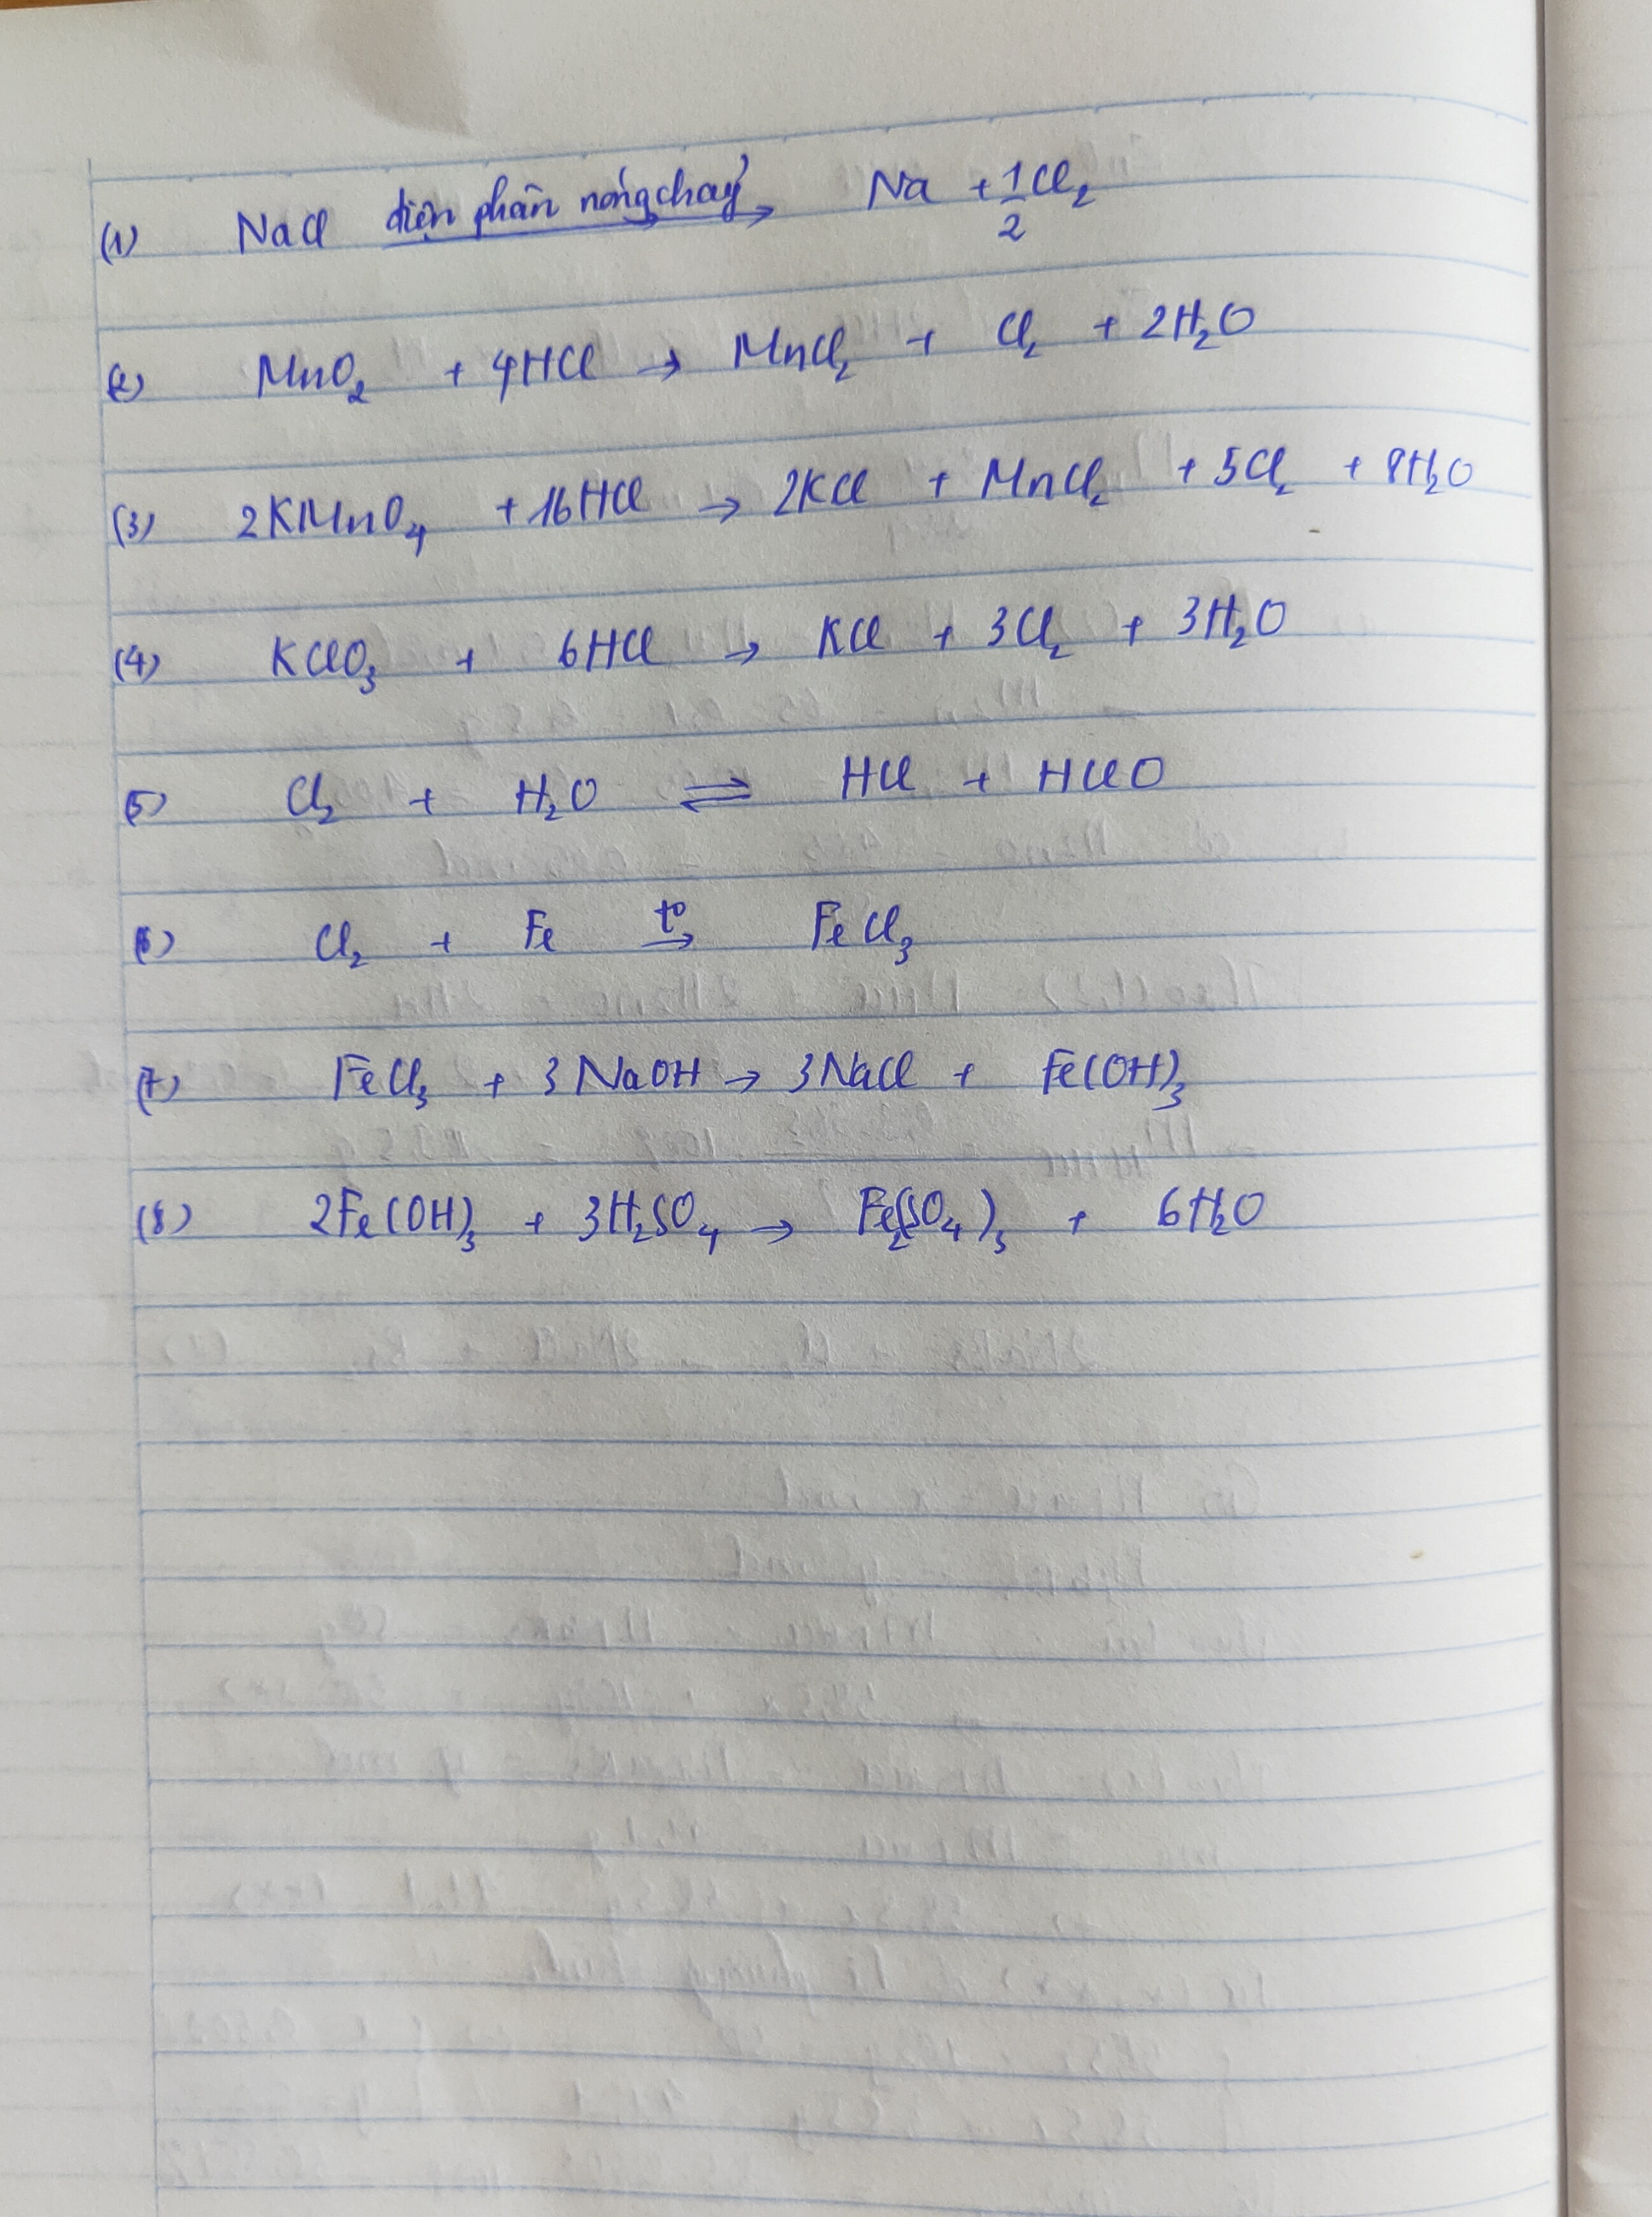 (1) NaCl điện phân nóng chảy → Na + 1/2 Cl₂
(2) MnO₂ + 4HCl → MnCl₂ + Cl₂ + 2H₂O
(3) 2KMnO₄ + 16HCl → 2KCl + MnCl₂ + 5Cl₂ + 8H₂O
(4) KClO₃ + 6HCl → KCl + 3Cl₂ + 3H₂O
(5) Cl₂ + H₂O ⇌ HCl + HClO
(6) Cl₂ + Fe t° → FeCl₃
(7) FeCl₃ + 3NaOH → 3NaCl + Fe(OH)₃
(8) 2Fe(OH)₃ + 3H₂SO₄ → Fe₂(SO₄)₃ + 6H₂O